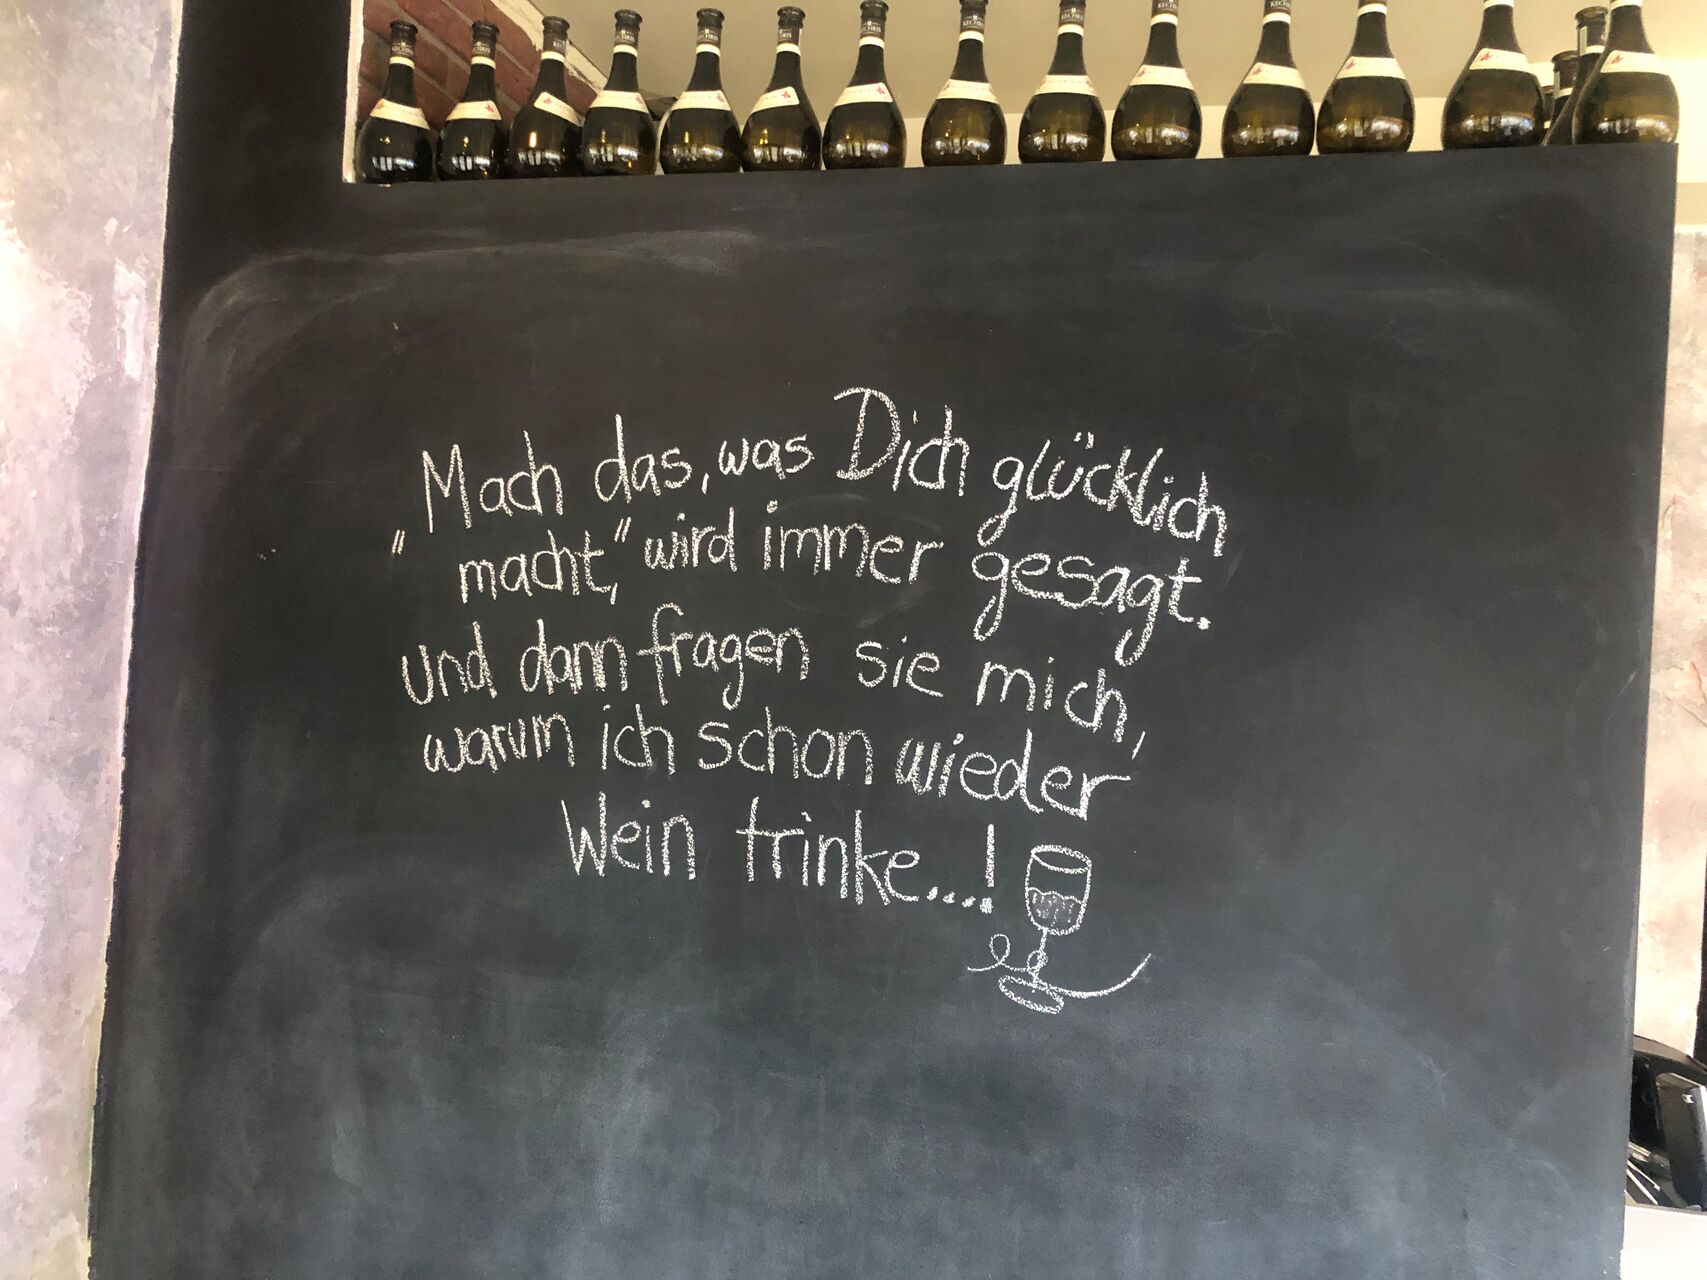 „Mach das, was Dich glücklich
macht,“ wird immer gesagt.
und dann fragen sie mich,
warum ich schon wieder
Wein trinke...!